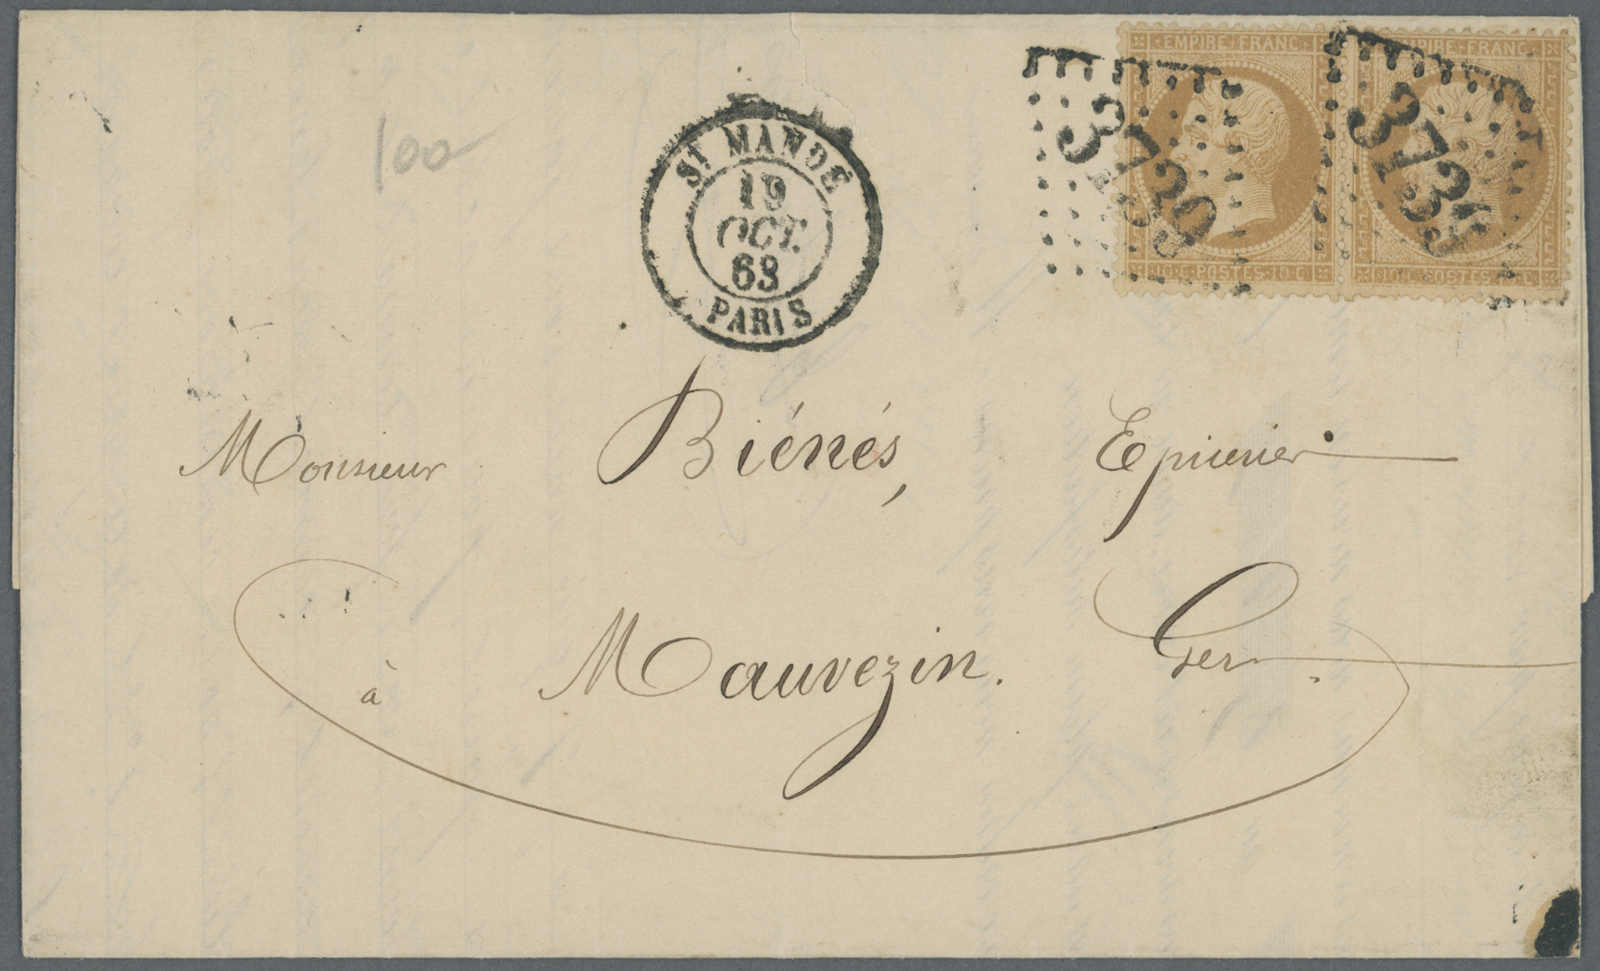 EMPIRE·FRANC. PIRE·FRANC.
3739 3739
10·C·POSTES·10·C 10·C·POSTES·10·C
100
ST MANDÉ
19
OCT.
63
PARIS
Monsieur Biénés, Epicier
à Mauvezin. Gers